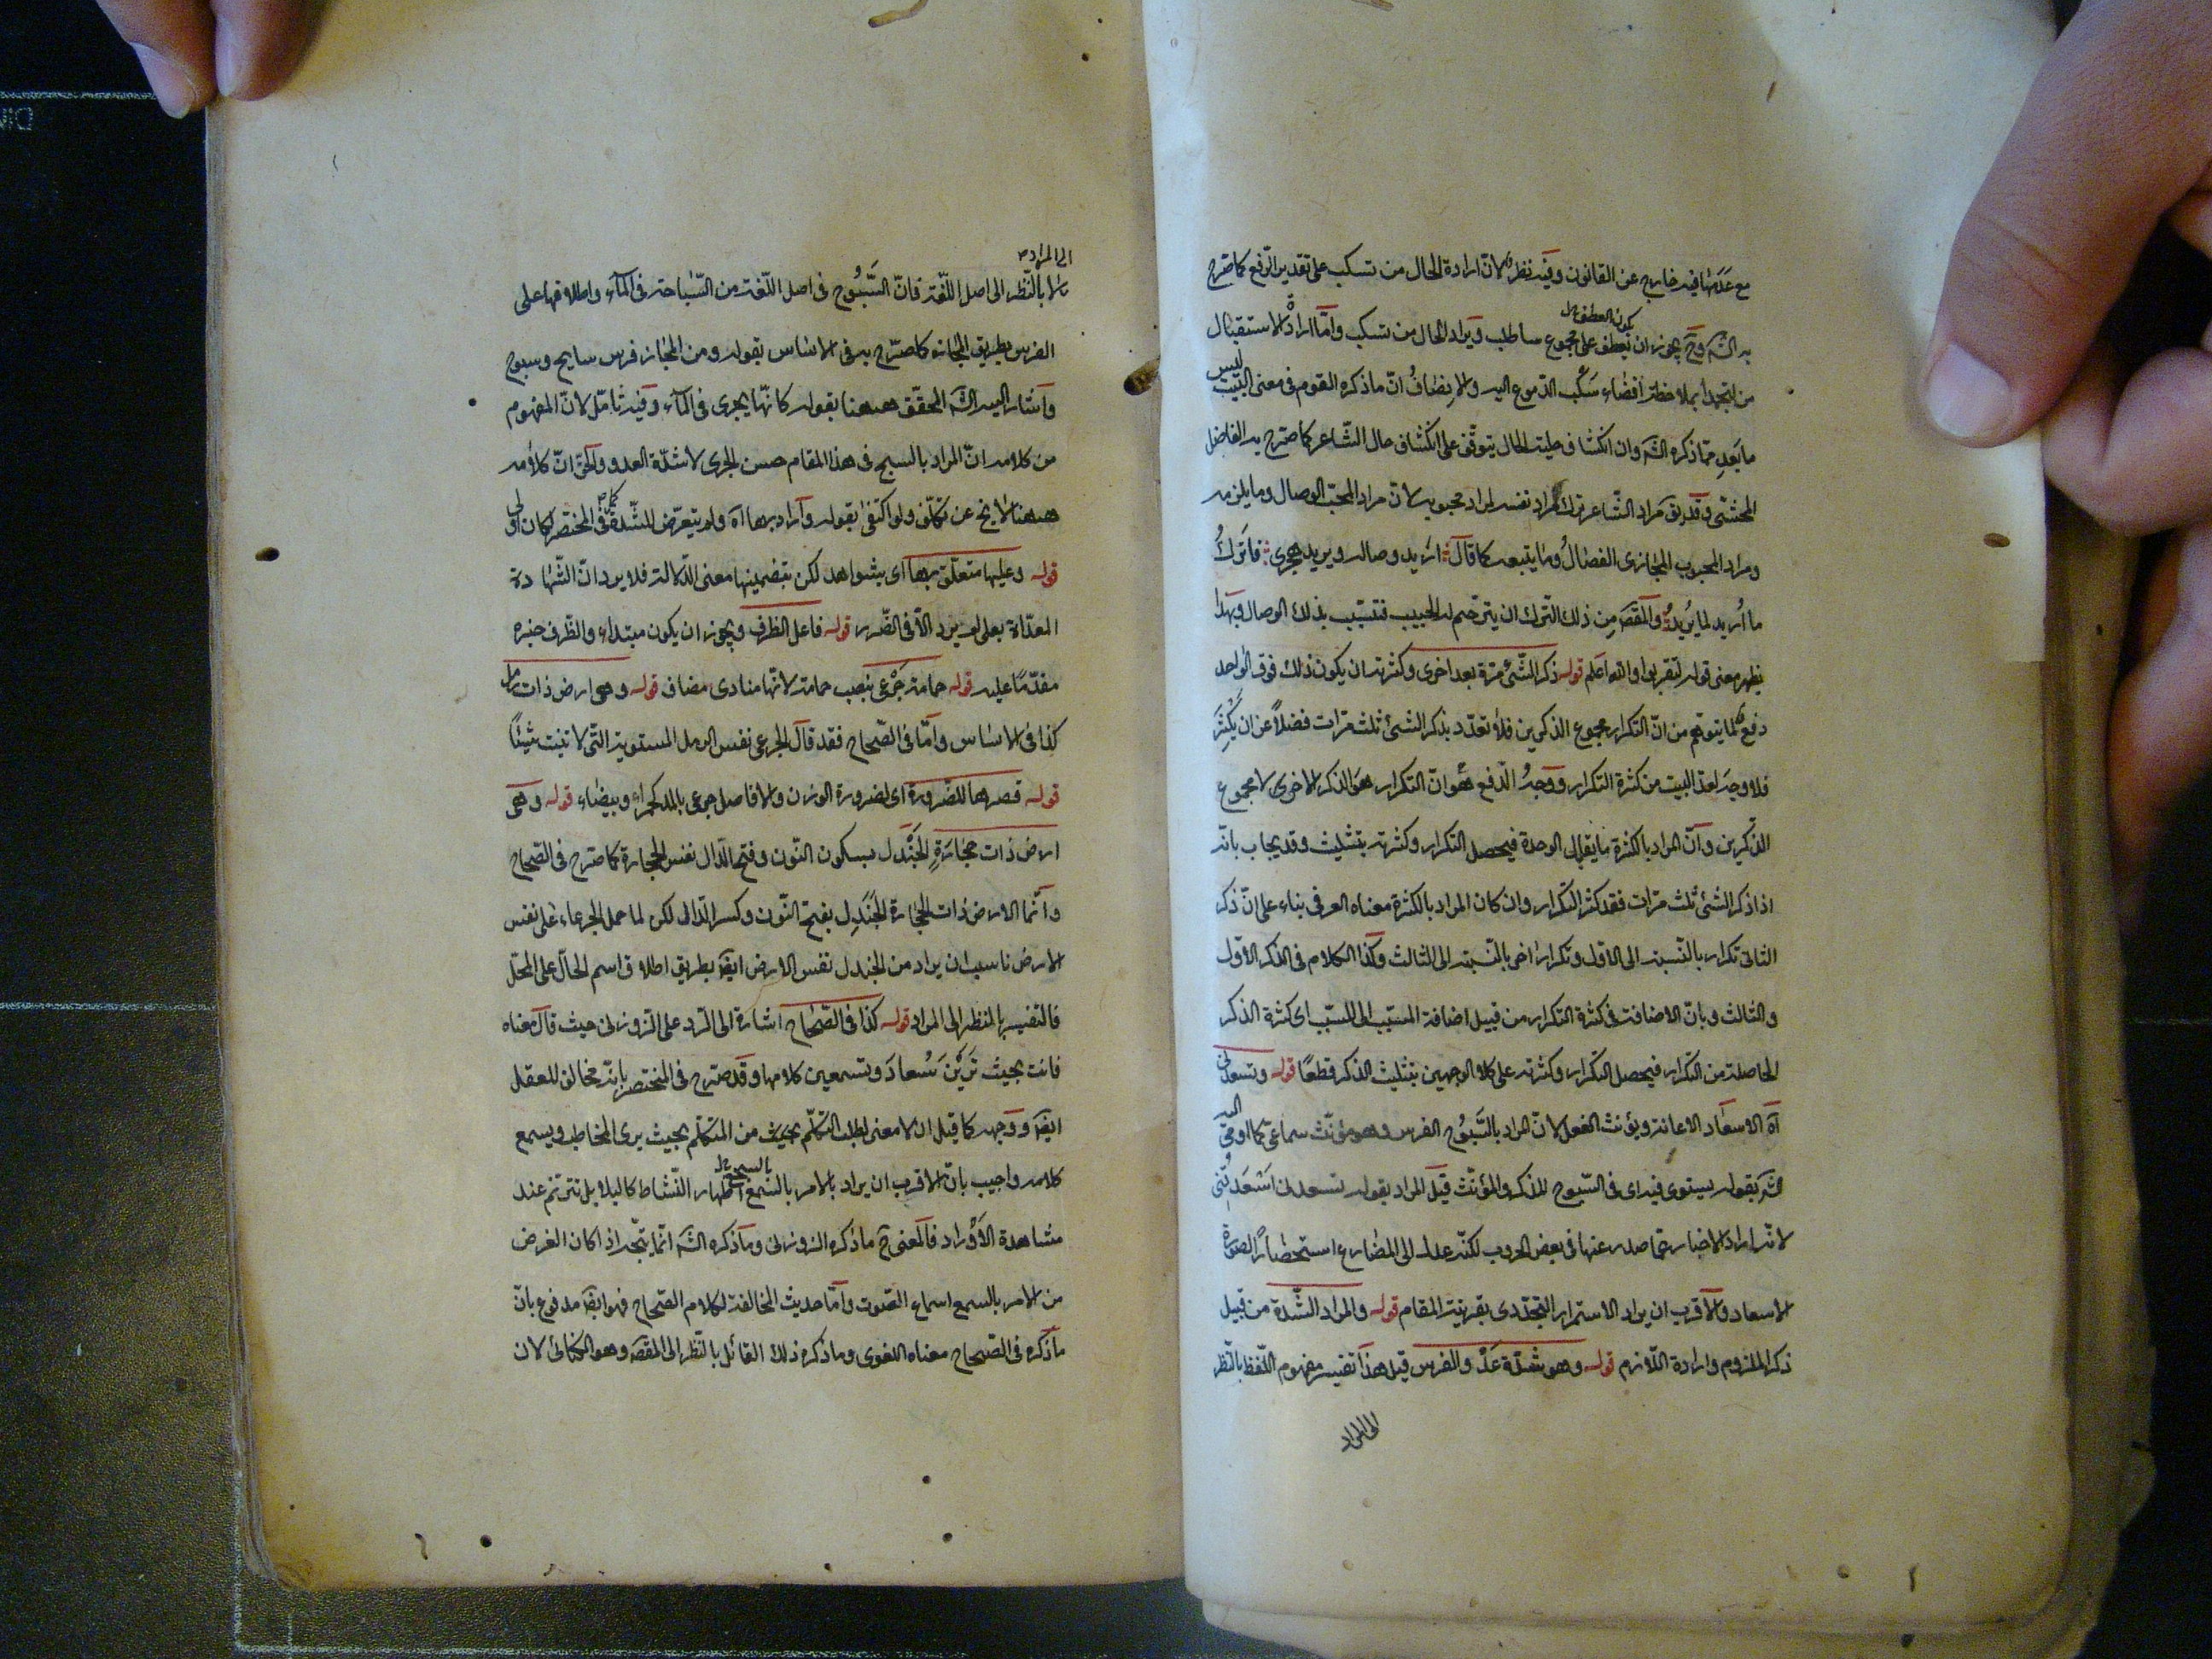 مع عدمها فيه خارج عن القانون وفيه نظر لانّ ارادة الحال من تسكب على تقدير الرّفع كما صرّح
يكون العطف
به الشه وح يجوز ان يعطف على مجموع ساطلب ويراد الحال من تسكب وامّا ارادة الاستقبال
ليس
من التجمد بملاحظة افضاء سَكْب الدّموع اليه والانصافُ انّ ما ذكره القوم فى معنى البيت
ما بَعِد ممّا ذكره الشه وان انكشاف حليت الحال يتوقّف على انكشاف حال الشّاعر كما صرّح به الفاضل
المحشّى وقد بق مراد الشّاعر ترك مراد نفسه لمراد محبوبه لانّ مراد المحبّ الوصال وما يلزمه
ومراد المحبوب المجازى الفصالُ وما يتبعه كما قال اريد وصاله ويريد هجرى فاترك
ما أريد لما يُريدُ والمقصَ مِن ذلك التّرك ان يترحّم له الحبيب فتسبّب بذلك الوصال وبهذا
يظهر معنى قوله لتقربوا والله اعلم قوله ذكر الشّئ مرّة بعد اخرى وكثرته ان يكون ذلك فوق الواحد
دفع لما يتوهّم من انّ التكرار مجموع الذكرين فلا تعدّد بذكر الشئ ثلث مرّات فضلاً عن ان يكثر
فلا وجه لعدّ البيت من كثرة التكرار ووجهُ الدّفع هُوَ انّ التكرار هو الذكر الاخرى لا مجموع
الذّكرين وانّ المراد بالكثرة ما يقابل الوحدة فيحصل التكرار وكثرته بتثليث وقد يجاب بانّه
اذا ذكر الشئ ثلث مرّات فقد كثر التّكرار وان كان المراد بالكثرة معناه العرفى بناء على انّ ذكر
الثانى تكرار بالنّسبة الى الاوّل وتكرار اخر بالنّسبة الى الثالث وكذا الكلام فى الذكر الاوّل
والثالث وبانّ الاضافة فى كثرة التكرار من قبيل اضافة المسبّب الى السّبب اى كثرة الذكر
الحاصلة من التّكرار فيحصل التّكرار وكثرته على كلا الوجهين بتثليث الذكر قطعًا قوله وتسعدنى
اليه
آه الاسعاد الاعانة ويؤنث الفعل لانّ المراد بالسَّبُوح الفرس وهو مؤنّث سماعىّ كما اومى
بقوله يستوى فيه اى فى السّبوح المذكر والمؤنّث قيل المراد بقوله تسعدنى اسعدتنى
لانّه اراد الاخبار عمّا صدر عنها فى بعض الحروب لكنّه عدل الى المضارع استحضارًا لصورة
الاسعاد والاقرب ان يراد الاستمرار التجدّدى بقرينة المقام قوله والمراد الشّدة من قبيل
ذكر الملزوم وارادة اللّازم قوله وهو شدّة عَدْو الفرس قيل هذا تفسير مفهوم اللّفظ بالنّظر
الى المراد
الى المراد
لا بالنّظر الى اصل اللّغة فانّ السَّبُوح فى اصل اللّغة من السّباحة فى المآء واطلاقها على
الفرس بطريق المجاز كما صرّح به فى الاساس بقوله ومن المجاز فرس سابح وسبوح
واشار اليه الشه المحقّق ههنا بقوله كانّها يجرى فى المآء وفيه تامّل لانّ المفهوم
من كلامه انّ المراد بالسبح فى هذا المقام حسن الجرى لا شدّة العدو والحق انّ كلامه
ههنا لا يخ عن تكلّف ولو اكتفى بقوله واراد بها آه ولم يتعرّض للشّدة كما فى المختصر لكان اولى
قوله وعليها متعلّق بها اى بشواهد لكن بتضمينها معنى الدّلالة فلا يرد انّ الشّهادة
المعدّاة بعلى لم يرد الاّ فى الضّرر قوله فاعل الظرف ويجوز ان يكون مبتداء والظّرف خبره
مقدّمًا عليه قوله حمامة جَرْعى بنصب حمامة لانّها منادى مضاف قوله وهى ارض ذات رمل
كذا فى الاساس وامّا فى الصّحاح فقد قال الجرعى نفس الرمل المستوية الّتى لا تنبت شيئًا
قوله قصرها للضّرورة اى لضرورة الوزن والا فاصل جرعى بالمد كحمراء وبيضاء قوله وهى
ارض ذات حجارَةٍ الجَنْدَل بسكون النّون وفتح الدّال نفس الحجارة كما صرّح فى الصّحاح
وانّما الارض ذات الحجارة الجَنَدِل بفتح النّون وكسر الدّال لكن لما حمل الجرعاء على نفس
الارض ناسب ان يراد من الجندل نفس الارض ايضَ بطريق اطلاق اسم الحالّ على المحلّ
فالتفسير بالنظر الى المراد قوله كذا فى الصّحاح اشارة الى الرّد على الزّوزنى حيث قال معناه
فانت بحيث تَرَيْنَ سُعادَ وتسمعين كلامها وقد صرّح فى المختصر بانّه مخالف للعقل
ايضَ ووجهه كما قيل ان لا معنى لطلب التكلّم بحيث من المتكلّم بحيث يرى المخاطب ويسمع
بالسجع
كلامه واجيب بانّ الاقرب ان يراد بالامر بالسّمع اظهار النّشاط كالبلابل تترنّم عند
مشاهدة الاَوْراد فالمعنى ح ما ذكره الزوزنى وما ذكره الشه انّما يتّجه اذا كان الغرض
من الامر بالسمع اسماع الصّوت وامّا حديث المخالفة لكلام الصّحاح فهو ايضَ مدفوع بانّ
ما ذكره فى الصّحاح معناه اللغوى وما ذكره ذلك القائل بالنّظر الى المقصَ وهو الكنائى لان